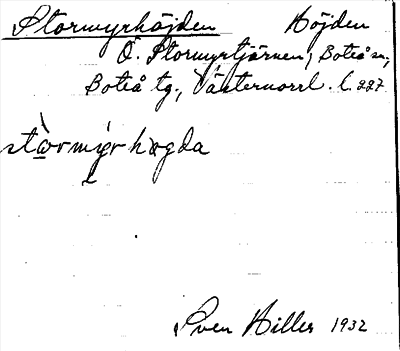 Stormyrhöjden Höjden
Ö. Stormyrtjärnen, Boteå sn,
Boteå tg., Västernorrl. l. 227
stormyrhøgda
Sven Hiller 1932